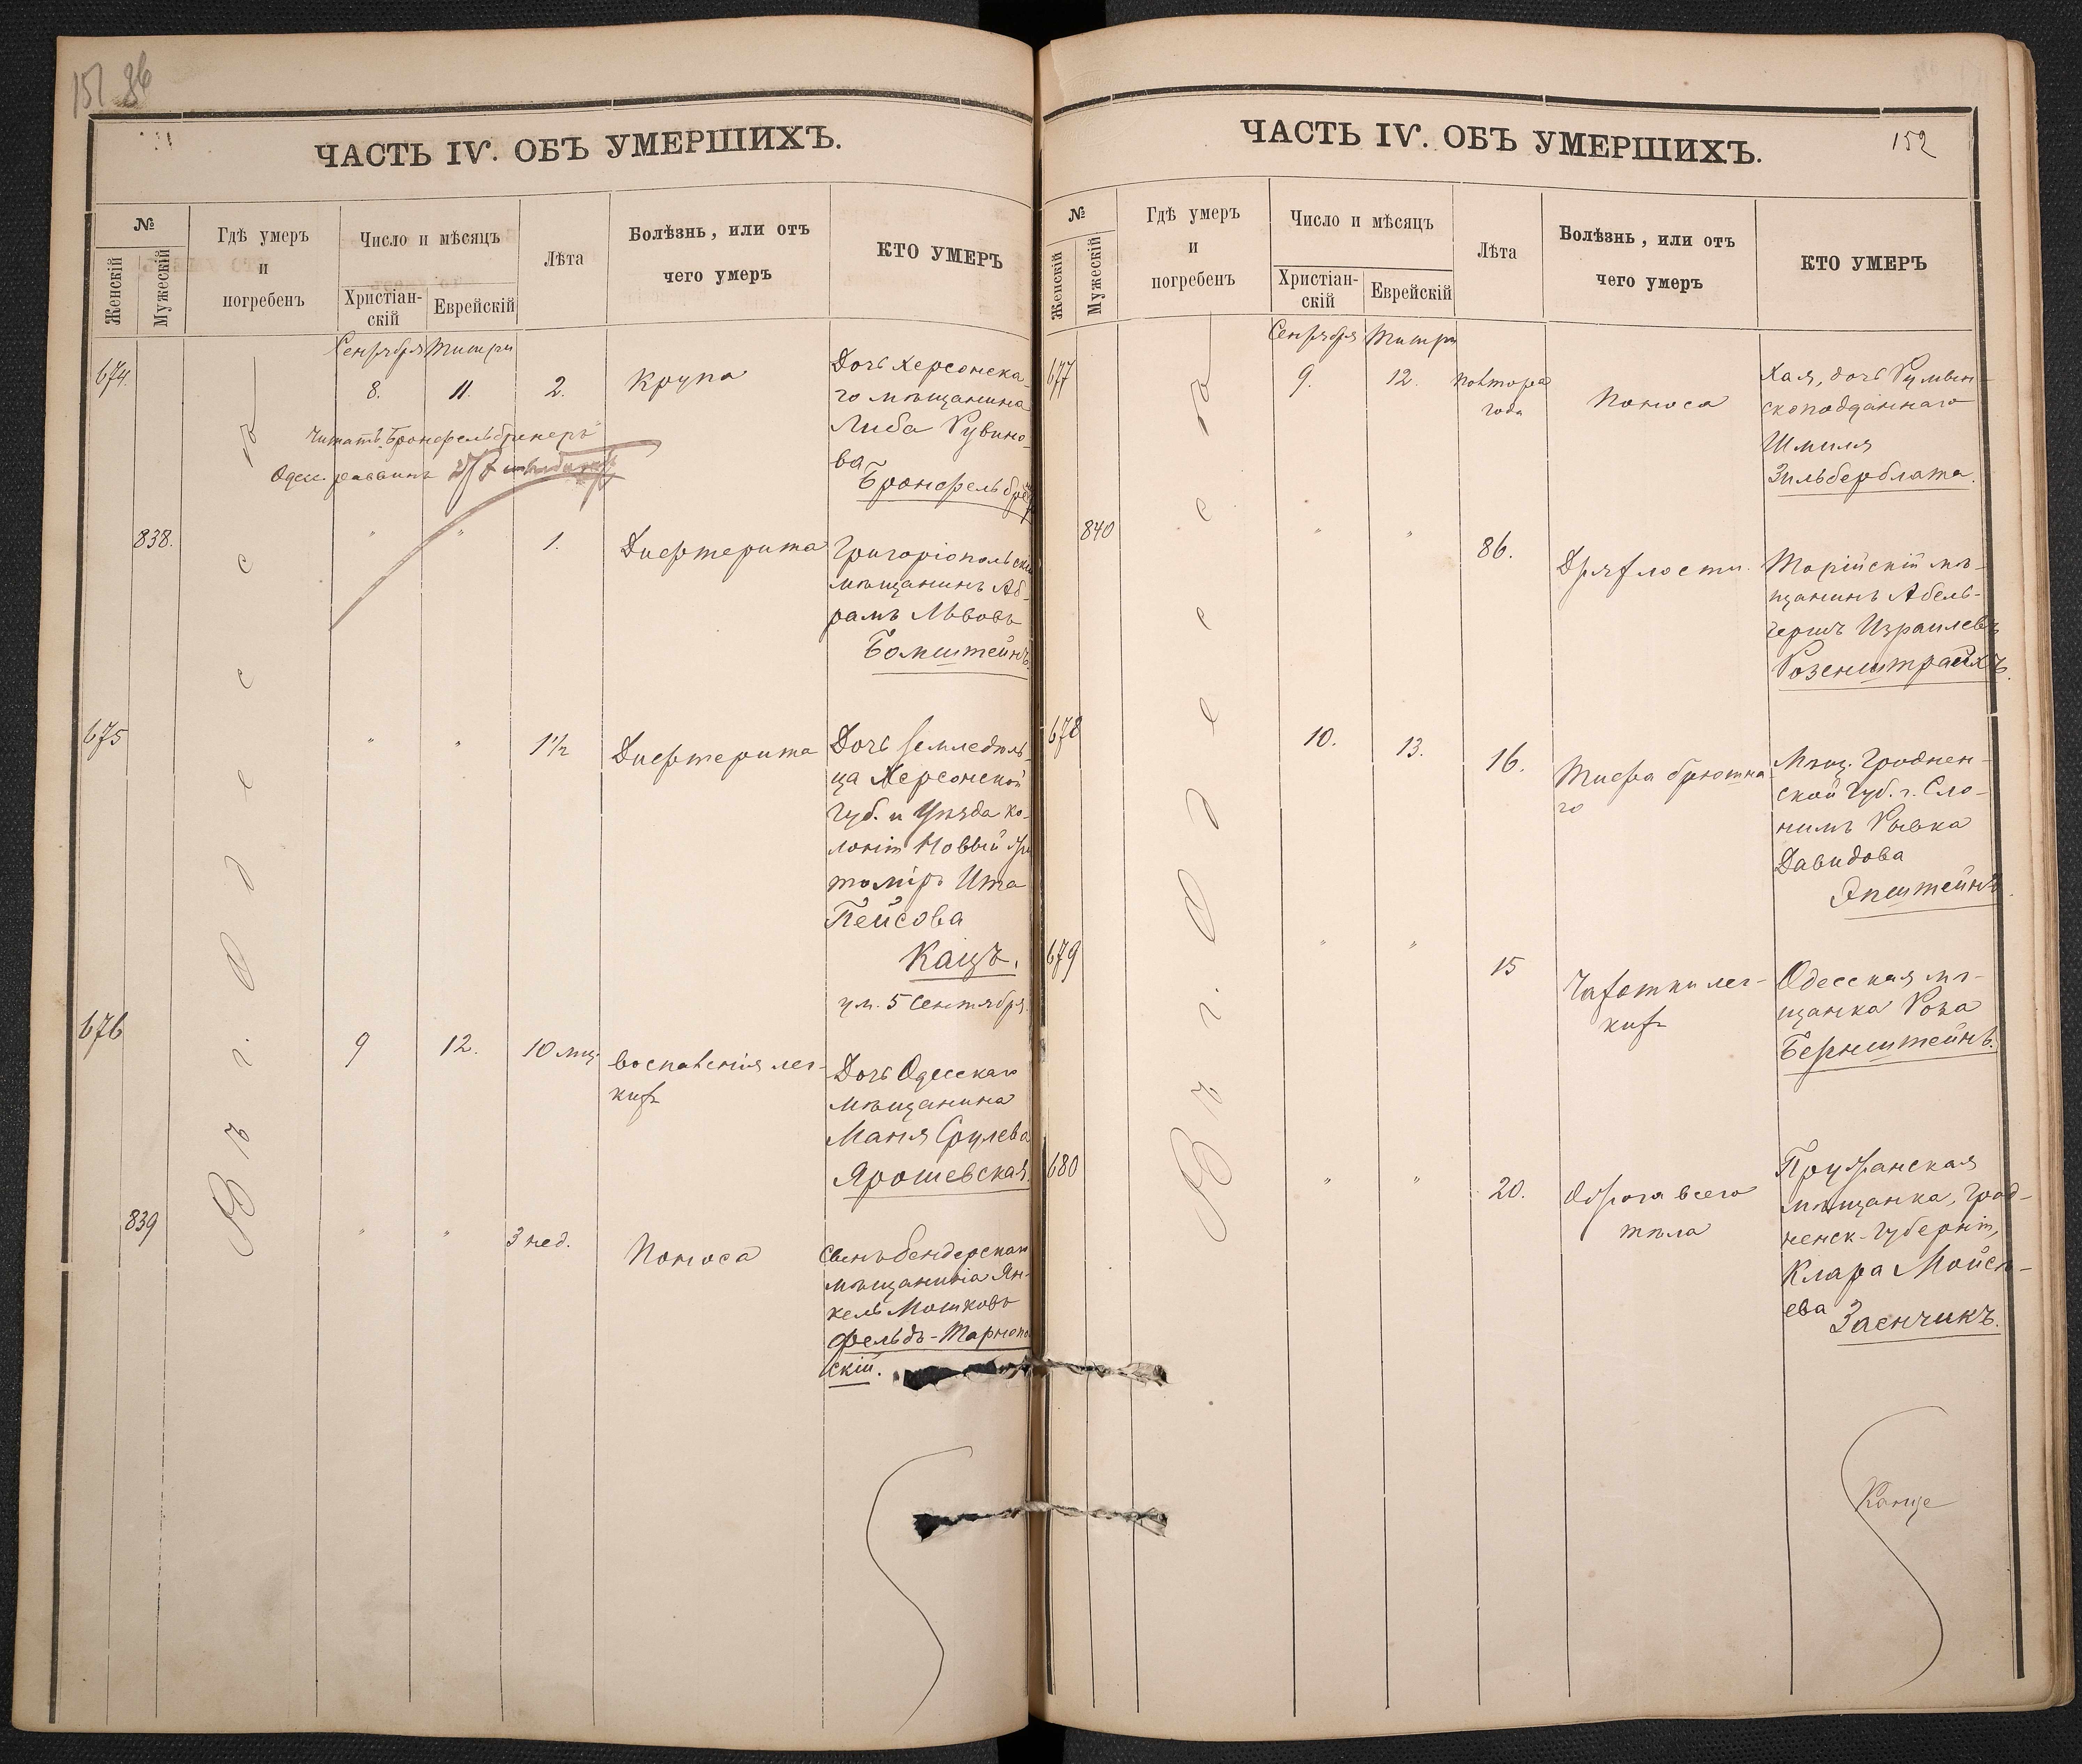 151 86
ЧАСТЬ IV. ОБЪ УМЕРШИХЪ.
№
Женскій
Мужескій
Гдѣ умеръ
и
погребенъ
Число и мѣсяцъ
Христіан-
скій
Еврейскій
Лѣта
Болѣзнь, или отъ
чего умеръ
КТО УМЕРЪ
Сентября Тишри
674.
8.
11.
2.
Крупа
Дочь Херсонска-
го мѣщанина
Либа Рувино-
ва
Читать „Бронфельбренеръ“
Одес. раввинъ
838.
"
"
1.
Дифтерита
Григоріопольскій
мѣщанинъ Аб-
рамъ Львовъ
Бомштейнъ.
675
"
"
1½
Дифтерита
Дочь Земледѣль-
ца Херсонской
Губ. и Уѣзда ко-
лоніи Новый Жи
томіръ Ита
Пейсова
Кацъ.
ум. 5 Сентября.
676
9
12.
10 мѣц
воспаленія лег-
кихъ
Дочь Одесскаго
мѣщанина
Маня Срулева
Ярошевская.
839
"
"
3 нед.
Поноса
Сынъ Бендерскаго
мѣщанина Ян-
кель Мошковъ
Фельдъ-Тарноп
скій.
Въ г. Одессѣ
ЧАСТЬ IV. ОБЪ УМЕРШИХЪ.
152
№
Женскій
Мужескій
Гдѣ умеръ
и
погребенъ
Число и мѣсяцъ
Христіан-
скій
Еврейскій
Лѣта
Болѣзнь, или отъ
чего умеръ
КТО УМЕРЪ
Сентября Тишри
677
9.
12.
полтора
года
Поноса
Хая, дочь Румын-
скоподданнаго
Шмиля
Зильберблата.
840
"
"
86.
Дряхлости.
мѣ-
щанинъ Абель-
Гершъ Израилевъ
Розенштрайхъ.
678
10.
13.
16.
Тифа брюшна-
го
Мѣщ. Гроднен-
ской Губ. г. Сло-
нимъ Рывка
Давидова
Эпштейнъ.
679
"
"
15
Чахотки лег-
кихъ
Одесская мѣ-
щанка Роза
Бернштейнъ.
680
"
"
20.
Ожога всего
тѣла
Пружанская
мѣщанка, Грод-
ненск. Губерніи,
Клара Мойсе-
ева Заенчикъ.
Въ г. Одессѣ